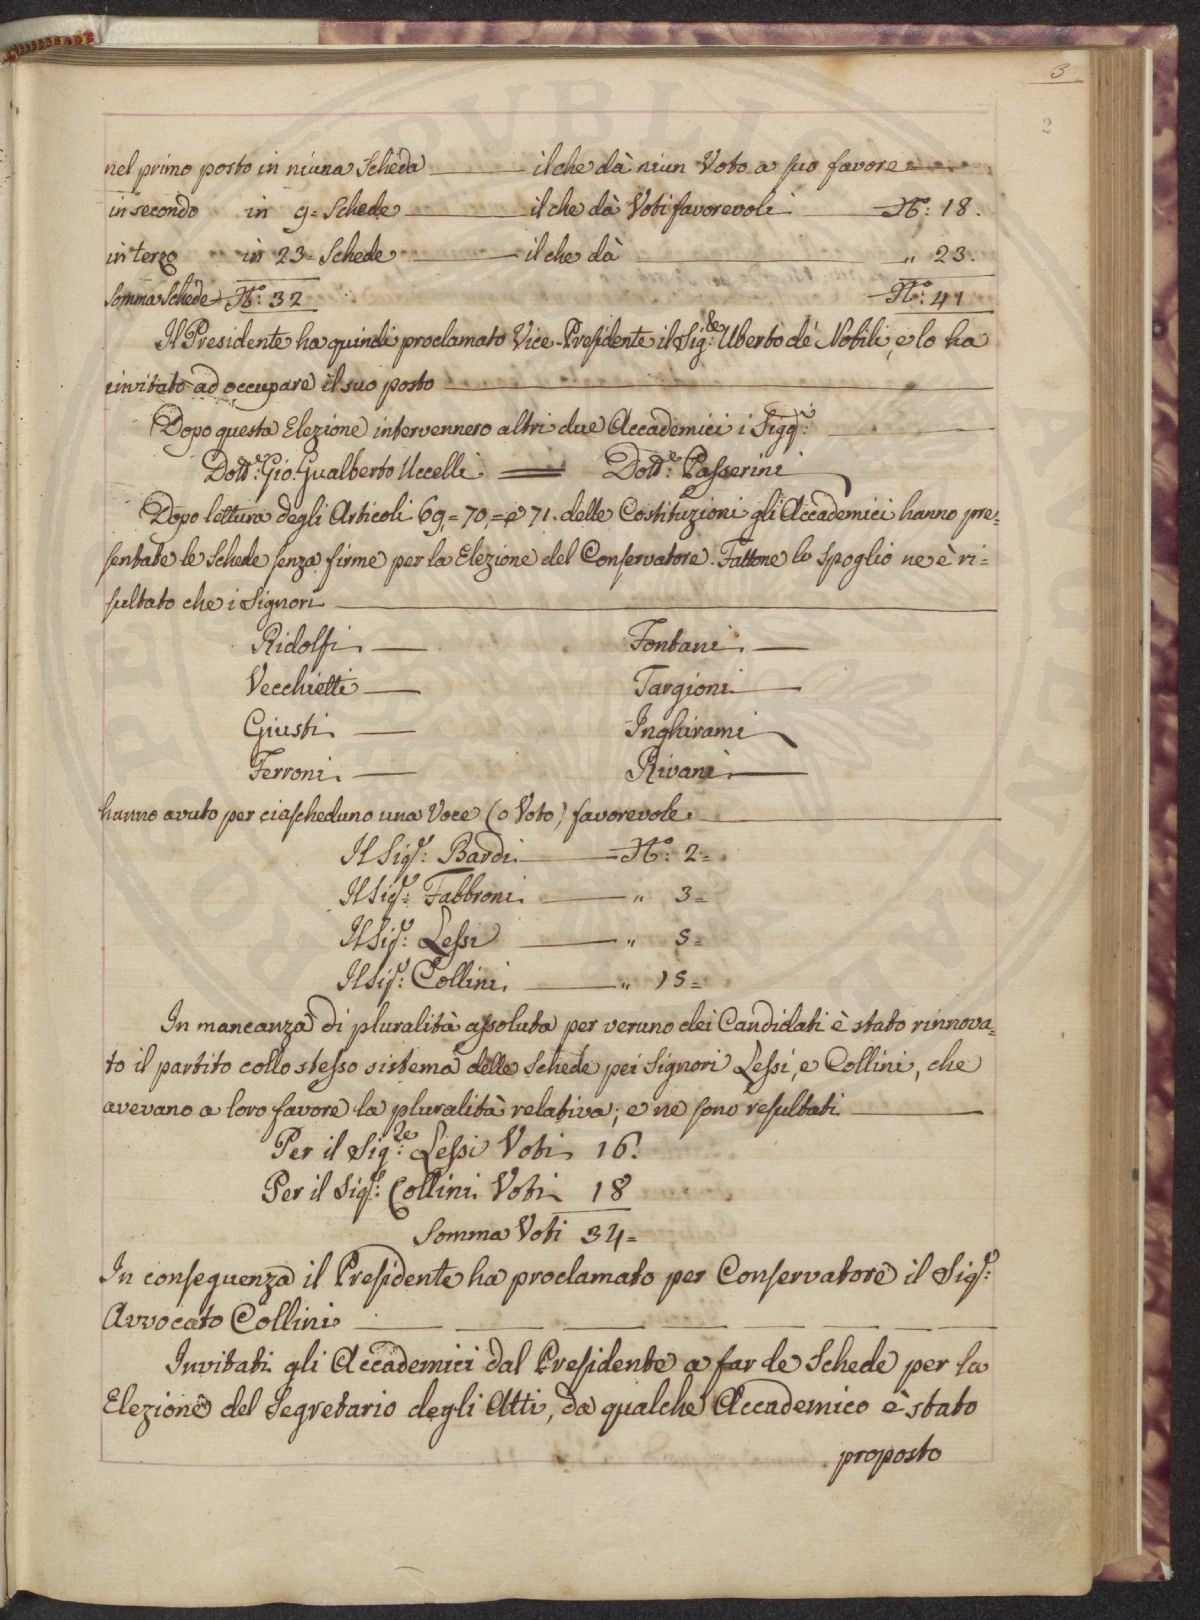 3
2
nel primo posto in niuna Scheda il che dà niun Voto a suo favore
in secondo in 9= Schede il che dà Voti favorevoli N°: 18.
in terzo in 23= Schede il che dà " 23.
Somma Schede N°: 32 N°: 41
Il Presidente ha quindi proclamato Vice-Presidente il Sig:re Uberto de' Nobili, e lo ha
invitato ad occupare il suo posto
Dopo questa Elezione intervennero altri due Accademici i Sigg:i
Dott:e Gio: Gualberto Uccelli = Dott:e Passerini
Dopo lettura degli Articoli 69,=70,=e 71. delle Costituzioni gli Accademici hanno pre=
sentate le Schede senza firme per la Elezione del Conservatore. Fattone lo Spoglio ne è ri=
sultato che i Signori
Ridolfi Fontani
Vecchietti Targioni
Giusti Inghirami
Ferroni Rivani
hanno avuto per ciascheduno una Voce (o Voto) favorevole.
Il Sig:r Bardi N°: 2=
Il Sig:r Fabbroni " 3=
Il Sig:r Lessi " 5=
Il Sig:r Collini " 15=
In mancanza di pluralità assoluta per veruno dei Candidati è stato rinnova=
to il partito collo stesso sistema delle Schede pei Signori Lessi, e Collini, che
avevano a loro favore la pluralità relativa; e ne sono resultati
Per il Sig:re Lessi Voti 16.
Per il Sig:r Collini Voti 18
Somma Voti 34=
In conseguenza il Presidente ha proclamato per Conservatore il Sig:r
Avvocato Collini
Invitati gli Accademici dal Presidente a far le Schede per la
Elezione del Segretario degli Atti, da qualche Accademico è stato
proposto